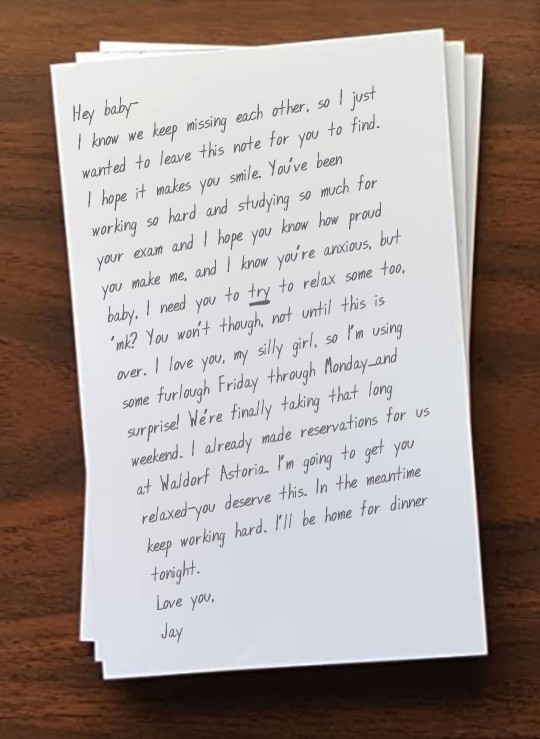 Hey baby-
I know we keep missing each other, so I just
wanted to leave this note for you to find.
I hope it makes you smile. You've been
working so hard and studying so much for
your exam and I hope you know how proud
you make me, and I know you're anxious, but
baby, I need you to try to relax some too,
'mk? You won't though, not until this is
over. I love you, my silly girl, so I'm using
some furlough Friday through Monday...and
surprise! We're finally taking that long
weekend. I already made reservations for us
at Waldorf Astoria. I'm going to get you
relaxed-you deserve this. In the meantime
keep working hard. I'll be home for dinner
tonight.
Love you,
Jay